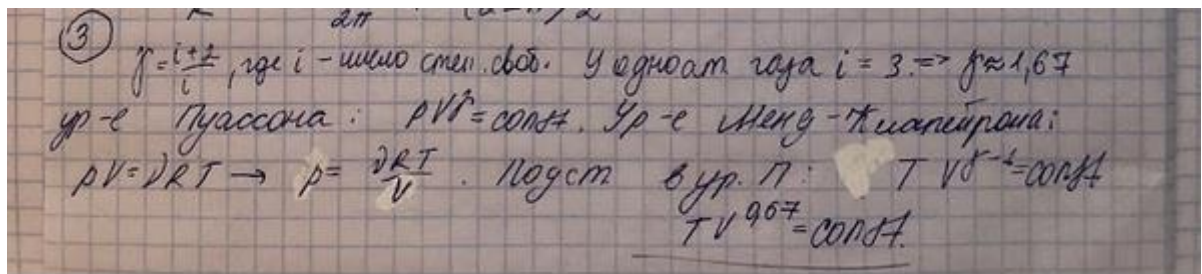 2π
③
γ = i+2/i, где i - число степ. своб. У одноат газа i = 3. => γ ≈ 1,67
ур-е Пуассона: pV^γ = const. Ур-е Менд-Клапейрона:
pV = νRT → p = νRT/V. Подст в ур. П: T V^γ-1 = const
TV^0,67 = const.